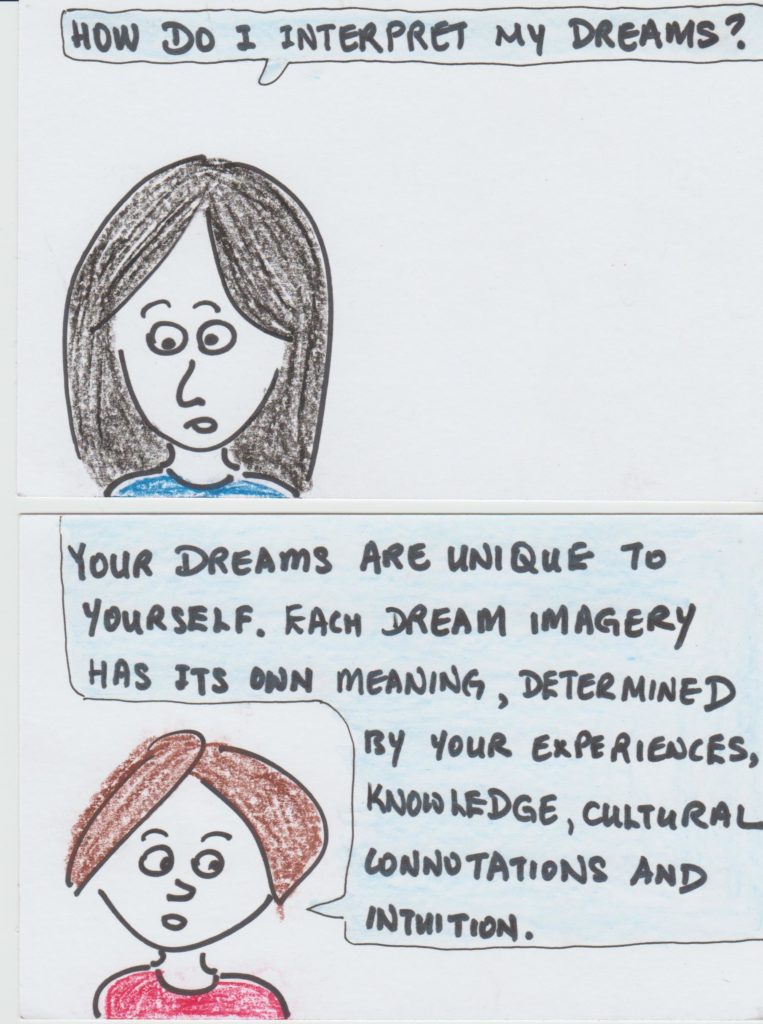 HOW DO I INTERPRET MY DREAMS?
YOUR DREAMS ARE UNIQUE TO
YOURSELF. EACH DREAM IMAGERY
HAS ITS OWN MEANING, DETERMINED
BY YOUR EXPERIENCES,
KNOWLEDGE, CULTURAL
CONNOTATIONS AND
INTUITION.